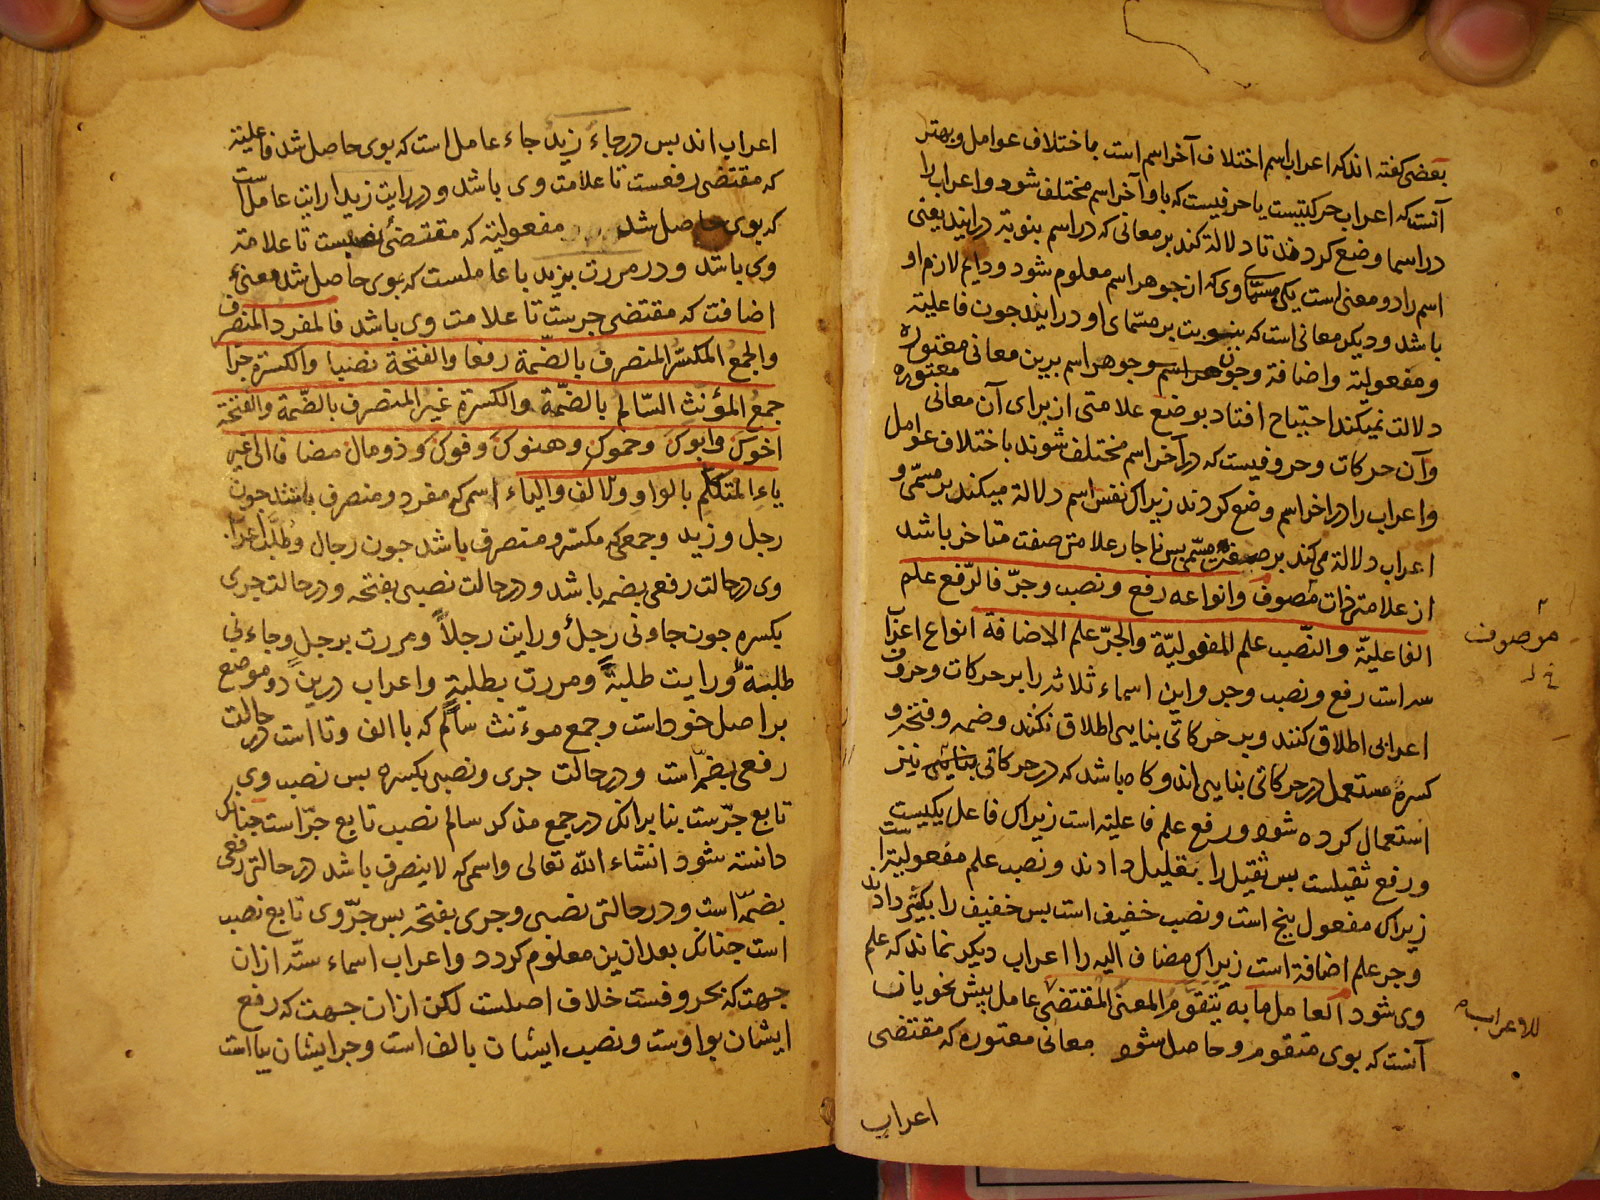 بعضی کفته اند که اعراب اسم اختلاف آخر اسم است باختلاف عوامل و بهتر
آنست که اعراب حرکتیست یا حرفیست که باو آخر اسم مختلف شود و اعراب را
در اسما وضع کردند تا دلالة کند بر معانی که در اسم بنوبة درایند یعنی
اسم را دو معنی است یکی مسمّای وی که از جوهر اسم معلوم شود و دایم لازم او
باشد و دیکر معانی است که بنوبت بر مسمّای او درایند جون فاعلیة
و مفعولیة و اضافة و جون جوهر اسم برین معانی معتوره
معتوره
دلالت نمیکند احتیاح افتاد بوضع علامتی از برای آن معانی
وآن حرکات و حروفیست که در آخر اسم مختلف شوند باختلاف عوامل
و اعراب را در اخر اسم وضع کردند زیراک نفس اسم دلالة میکند بر مسمّی و
اعراب دلالة می کند بر صفة مسمّی بس ناجار علامة صفت متاخر باشد
از علامة ذات مصوف وانواعه رفع و نصب و جرّ فالرّفع علم
الفاعلیّة والنّصب علم المفعولیّة والجرّ علم الاضافة انواع اعراب
سه است رفع و نصب و جر و این اسماء ثلاثه را بر حرکات و حروف
اعرابی اطلاق کنند و بر حرکاتی بنایی اطلاق نکنند و ضمه و فتحه و
کسره مستعمل در حرکاتی بنایی اند و کاه باشد که در حرکاتی بنایی نیز
استعمال کرده شود و رفع علم فاعلیة است زیراک فاعل یکیست
و رفع ثقیلست بس ثقیل را بقلیل دادند و نصب علم مفعولیة است
زیراک مفعول پنج است و نصب خفیف است بس خفیف را بکثیر دادند
و جر علم اضافة است زیراک مضاف الیه را اعراب دیکر نماند که علم
وی شود العامل ما به یتقوّم المعنی المقتضی عامل بیش نحویان
آنست که بوی متقوم و حاصل شود معانی معتوره که مقتضی
اعراب
موصوف
للاعراب
اعراب اند بس در جاء زید جاء عامل است که بوی حاصل شد فاعلیة
که مقتضی رفعست تا علامت وی باشد و در رایت زیدا رایت عاملست
که بوی حاصل شد مفعولیة که مقتضئ نصبست تا علامة
وی باشد و در مررت بزید با عاملست که بوی حاصل شد معنیء
اضافت که مقتضی جرست تا علامت وی باشد فالمفرد المنصرف
والجمع المکسّر المنصرف بالضّمة رفعا والفتحة نصبا والکسرة جرا
جمع المؤنّث السّالم بالضمّة والکسرة غیر المنصرف بالضّمة والفتحة
اخوک وابوک وحموک وهنوک وفوک وذو مال مضافا الی غیر
یاء المتکلّم بالواو والالف والیاء اسمی که مفرد و منصرف باشد جون
رجل و زید و جمعی که مکسّر و منصرف باشد جون رجال و طلبة اعراب
وی در حالت رفعی بضمه باشد و در حالت نصبی بفتحه و در حالت جری
بکسره جون جاونی رجلٌ و رایت رجلاً و مررت برجلٍ و جاءنی
طلبةٌ و رایت طلبةً و مررت بطلبةٍ و اعراب درین دو موضع
بر اصل خود است و جمع موءنث سالم که با الف و تا است در حالت
رفعی بضمّه است و در حالت جری و نصبی بکسره بس نصب وی
تابع جرّست بنا برانک در جمع مذکر سالم نصب تابع جرّ است جنانک
دانسته شود انشاء الله تعالی و اسمی که لاینصرف باشد در حالتی رفعی
بضمّه است و در حالتی نصبی و جری بفتحه بس جرّ وی تابع نصب
است جنانک بعد ازین معلوم کردد و اعراب اسماء ستّه ازان
جهت که بحروفست خلاف اصلست لکن ازان جهت که رفع
ایشان بواوست و نصب ایشان بالف است و جر ایشان بیا است